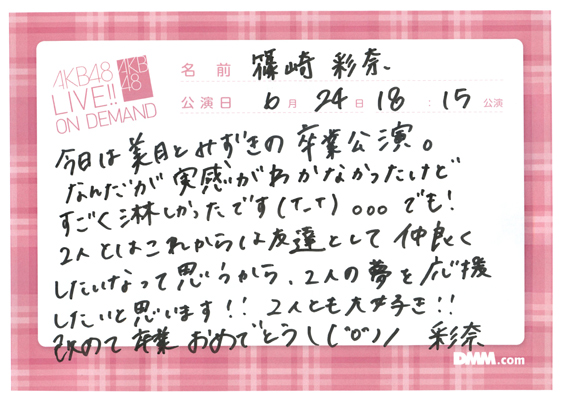 AKB48
LIVE!!
ON DEMAND
AKB
48
名前 篠崎 彩奈
公演日 6月24日 18:15公演
今日は美月とみずきの卒業公演。
なんだが実感がわかなかったけど
すごく淋しかったです(T_T)ooo でも!
2人とはこれからは友達として仲良く
したいなって思うから、2人の夢を応援
したいと思います!! 2人とも大好き!!
改めて卒業おめでとうし(°o°)ノ 彩奈
DMM.com